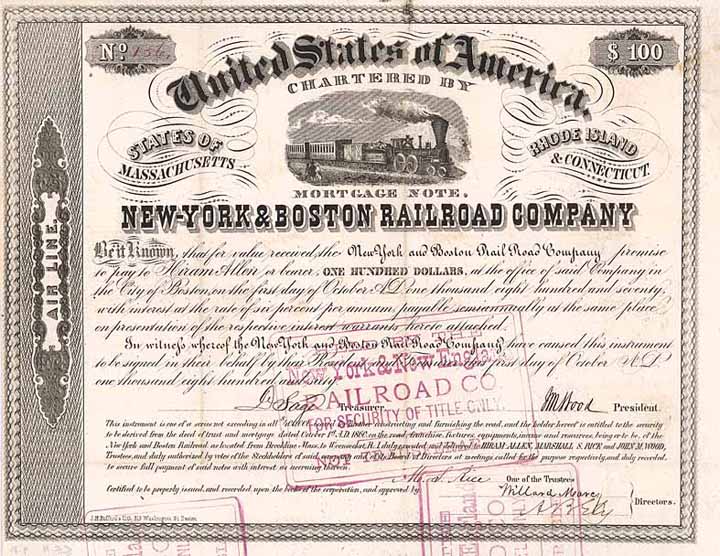 No 156
$ 100
United States of America.
CHARTERED BY
STATES OF
MASSACHUSETTS
RHODE ISLAND
& CONNECTICUT.
MORTGAGE NOTE.
NEW-YORK & BOSTON RAILROAD COMPANY
AIR LINE.
Be it Known, that for value received, the New York and Boston Rail Road Company promise
to pay to Hiram Allen or bearer, ONE HUNDRED DOLLARS, at the office of said Company in
the City of Boston, on the first day of October A.D. one thousand eight hundred and seventy,
with interest at the rate of six per cent per annum, payable semiannually at the same place
on presentation of the respective interest warrants hereto attached.
In witness whereof the New York and Boston Rail Road Company have caused this instrument
to be signed in their behalf by their President and Treasurer this first day of October A.D.
one thousand eight hundred and sixty.
Treasurer. JM Wood President.
New York & New England
RAILROAD CO.
FOR SECURITY OF TITLE ONLY.
This instrument is one of a series not exceeding in all constructing and furnishing the road, and the holder hereof is entitled to the security
to be derived from the deed of trust and mortgage dated October 1st A.D. 1860, on the road, franchise, fixtures, equipments, income and resources, being or to be, of the
New York and Boston Railroad as located from Brookline Mass. to Woonsocket R.I. duly granted, and delivered to HIRAM ALLEN, MARSHALL S. RICE and JOHN M. WOOD,
Trustees, and duly authorized by votes of the Stockholders of said corporation and of its Board of Directors at meetings called for the purpose respectively, and duly recorded,
to secure full payment of said notes with interest as accruing thereon.
M. S. Rice One of the Trustees
Certified to be properly issued, and recorded upon the books of the corporation, and approved by
Willard
Directors.
J.H. Bufford's Lith. 313 Washington St. Boston